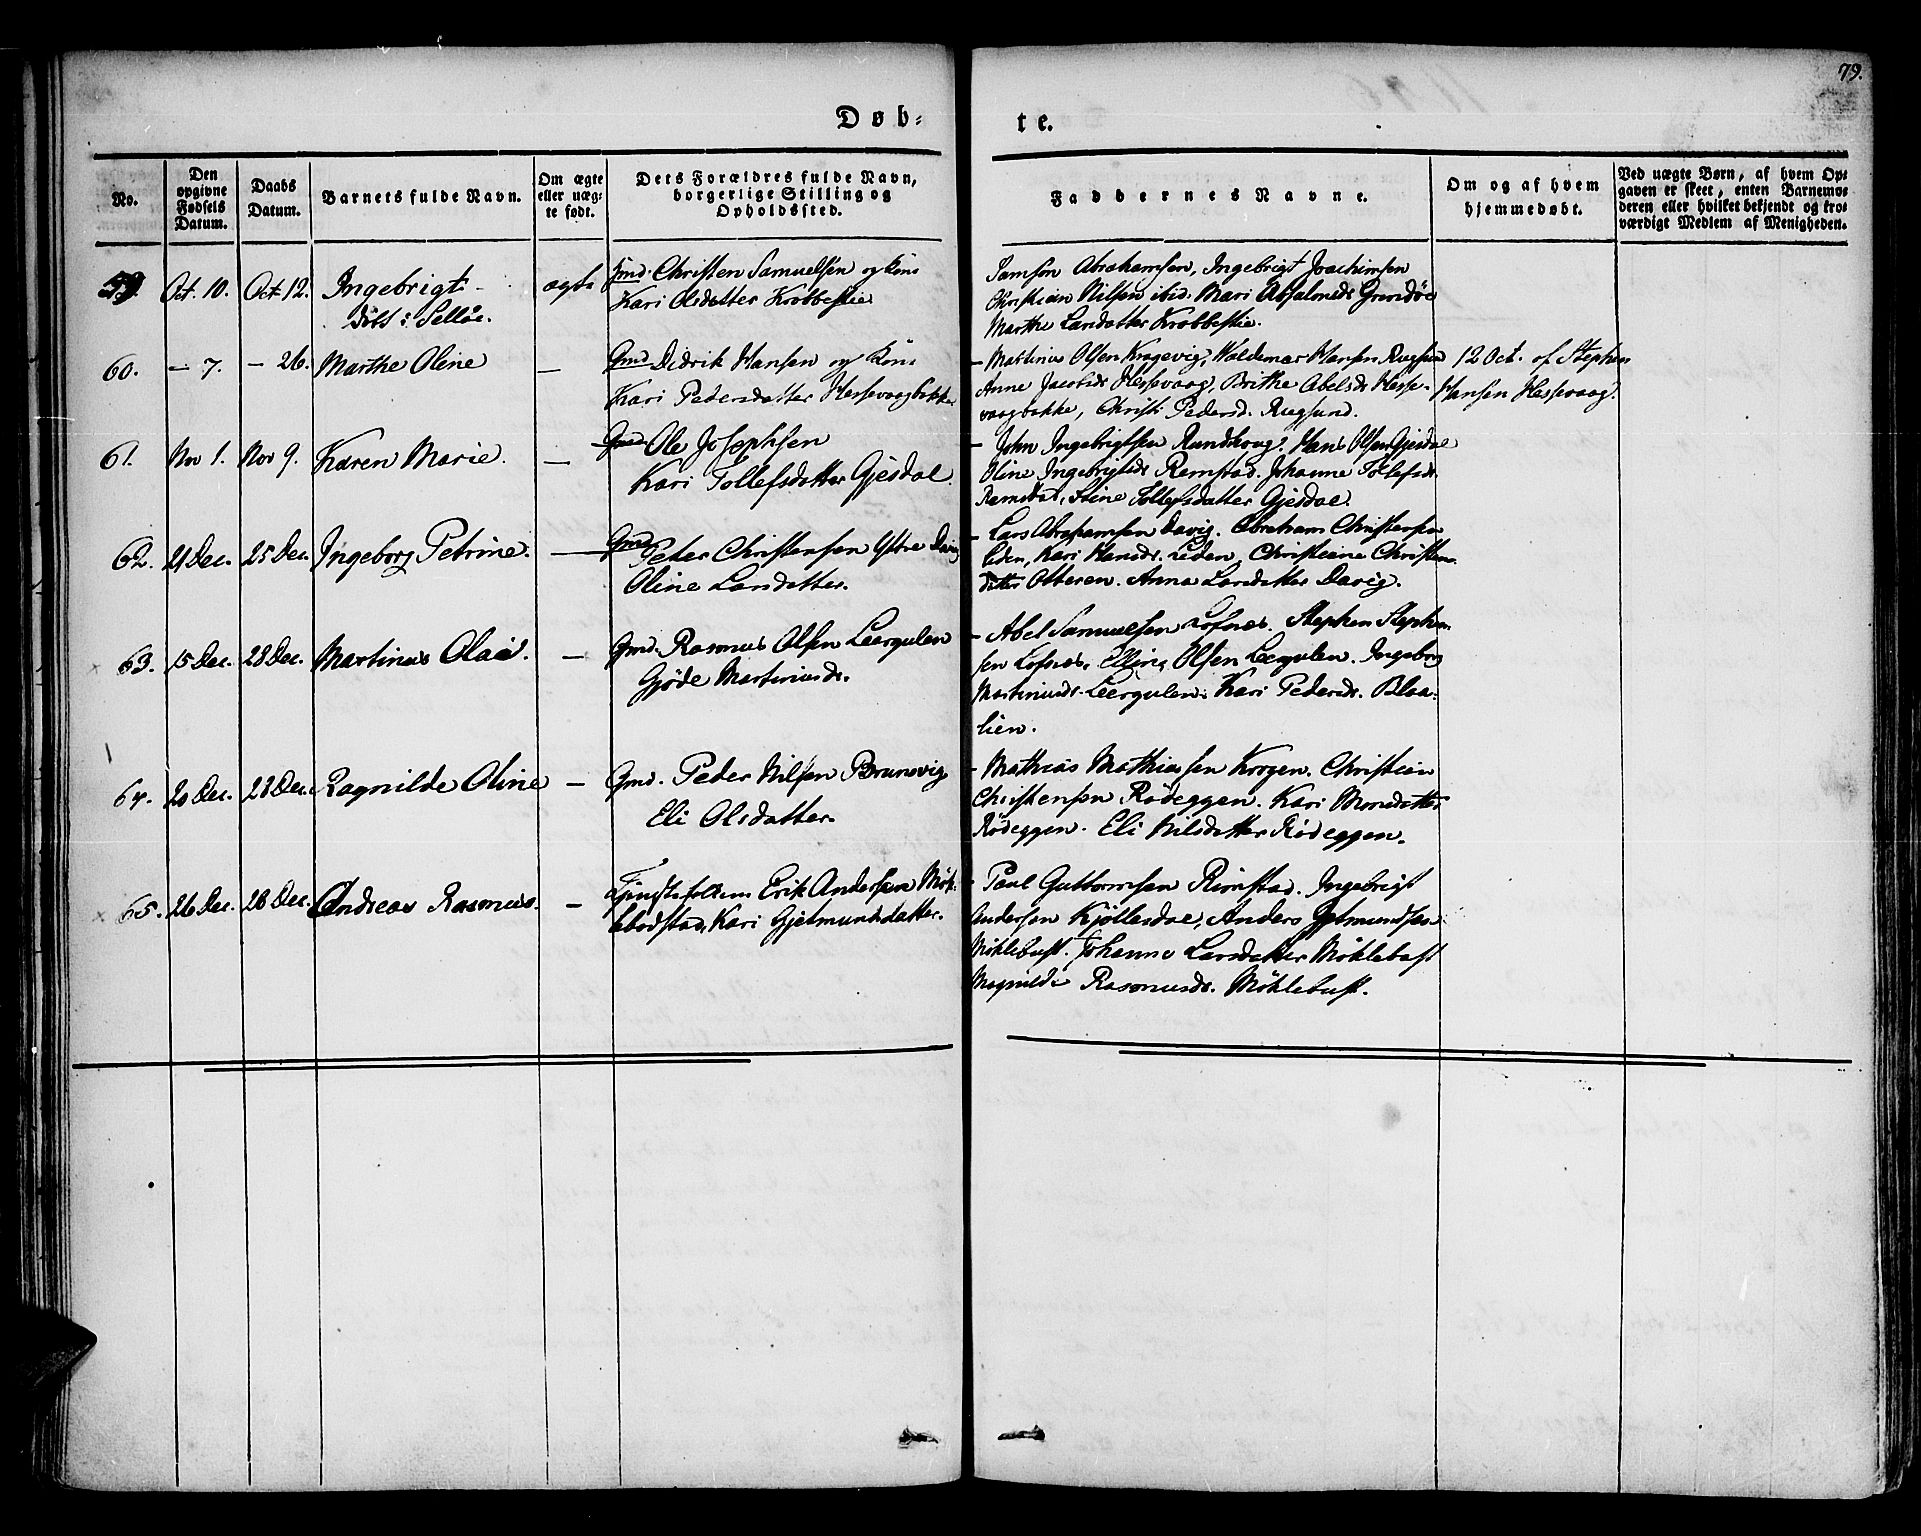 79.
Døb-
te.
No.
Den opgivne Fødsels Datum.
Daabs Datum.
Barnets fulde Navn.
Om ægte eller uægte født.
Dets Forældres fulde Navn, borgerlige Stilling og Opholdssted.
Faddernes Navne.
Om og af hvem hjemmedøbt.
Ved uægte Børn, af hvem Opgaven er skeet, enten Barnemoderen eller hvilket bekjendt og troværdigt Medlem af Menigheden.
59. Oct. 10. Oct 12. Ingebrigt ægte Gmd. Christen Samuelsen og Kone
døbt i Selløe. Kari Olsdatter Krabbestie
Samson Abrahamsen, Ingebrigt Joachimsen
Christian Nilsen ibid. Mari Absalonsds Grindøe
Marthe Larsdatter Krabbestie.
60. — 7. — 26. Marthe Oline — Gmd. Didrik Hansen og Kone
Kari Pedersdatter Hessevaagbakke
— Martinus Olsen Kragevig, Waldemar Hansen Rugsund
Anne Jacobsds Hessevaag, Brithe Abelsds Hesse-
vaagbakke, Christi Pedersd. Rugsund.
12 Oct. af Stephen
Hansen Hessevaag.
61. Nov 1. Nov 9. Karen Marie. — Gmd Ole Josephsen
Kari Tollefsdatter Gjesdal
— John Ingebrigtsen Hans Olsen Gjesdal
Oline Ingebrigtsds Ramstad. Johanne Tollefsds.
Ramstad, Stine Tollefsdatter Gjesdal.
62. 21 Dec. 25 Dec. Ingeborg Petrine. — Gmd Peder Christensen Ystre Davig
Oline Larsdatter.
— Lars Abrahamsen Davig. Abraham Christensen
Leden, Kari Hansds. Leden, Christiane Christens-
datter Otteren. Anna Larsdatter Davig.
63. 15 Dec. 28 Dec. Martinus Olai. — Gmd. Rasmus Olsen Leergulen
Gjøde Martinusds.
— Abel Samuelsen Lofnæs. Stephen Stephen-
sen Lofnæs. Olsen Leergulen. Ingeborg
Martinusds. Leergulen. Kari Pedersds. Blaa-
lien.
64. 20 Dec. 28 Dec. Ragnilde Oline — Gmd. Peder Nilsen Brunsvig
Eli Olsdatter.
— Mathias Mathiassen Krogen. Christian
Christensen Rødeggen. Kari Monsdatter
Rødeggen. Eli Nilsdatter Rødeggen.
65. 26 Dec. 28 Dec. Andreas Rasmus. — Tjenestefolkene Erik Andersen Møk-
lebostad, Kari Gjetmundsdatter.
— Paul Guttormsen Rimstad. Ingebrigt
Andersen Kjøllesdal, Anders Gjetmundsen
Møklebust. Johanne Larsdatter Møklebust
Magnilde Rasmusds. Møklebust.